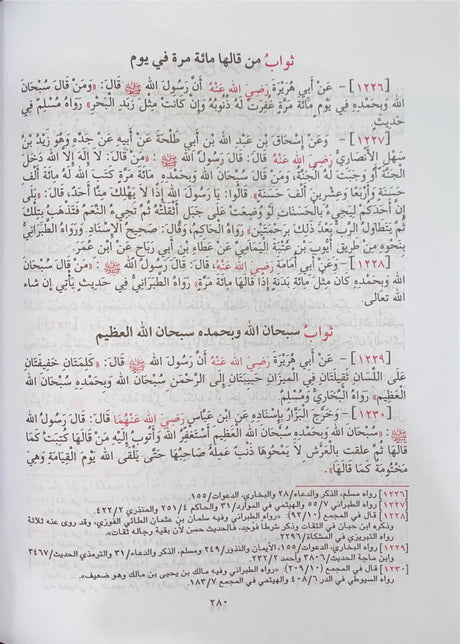 ثوابُ من قالها مائة مرة في يوم
[١٢٢٦] - عَنْ أَبِي هُرَيْرَةَ رَضِيَ اللهُ عَنْهُ أَنَّ رَسُولَ اللهِ ﷺ قَالَ: «وَمَنْ قَالَ سُبْحَانَ
اللهِ وَبِحَمْدِهِ فِي يَوْمٍ مِائَةَ مَرَّةٍ غُفِرَتْ لَهُ ذُنُوبُهُ وَإِنْ كَانَتْ مِثْلَ زَبَدِ الْبَحْرِ» رَوَاهُ مُسْلِمٌ فِي
حَدِيثٍ.
[١٢٢٧] - وَعَنْ إِسْحَاقَ بْنِ عَبْدِ اللهِ بْنِ أَبِي طَلْحَةَ عَنْ أَبِيهِ عَنْ جَدِّهِ وَهُوَ زَيْدُ بْنُ
سَهْلٍ الْأَنْصَارِيُّ رَضِيَ اللهُ عَنْهُ قَالَ: قَالَ رَسُولُ اللهِ ﷺ: «مَنْ قَالَ: لَا إِلَهَ إِلَّا اللهُ دَخَلَ
الْجَنَّةَ أَوْ وَجَبَتْ لَهُ الْجَنَّةُ، وَمَنْ قَالَ: سُبْحَانَ اللهِ وَبِحَمْدِهِ، مِائَةَ مَرَّةٍ كَتَبَ اللهُ لَهُ مِائَةَ أَلْفِ
حَسَنَةٍ وَأَرْبَعًا وَعِشْرِينَ أَلْفَ حَسَنَةٍ». قَالُوا: يَا رَسُولَ اللهِ إِذًا لَا يَهْلِكَ مِنَّا أَحَدٌ. قَالَ: «بَلَى
إِنَّ أَحَدَكُمْ لَيَجِيءُ بِالْحَسَنَاتِ لَوْ وُضِعَتْ عَلَى جَبَلٍ أَثْقَلَتْهُ ثُمَّ تَجِيءُ النِّعَمُ فَتَذْهَبُ بِتِلْكَ
ثُمَّ يَتَطَاوَلُ الرَّبُّ بَعْدَ ذَلِكَ بِرَحْمَتِهِ» رَوَاهُ الْحَاكِمُ، وَقَالَ: صَحِيحُ الْإِسْنَادِ. وَرَوَاهُ الطَّبَرَانِيُّ
بِنَحْوِهِ مِنْ طَرِيقِ أَيُّوبَ بْنِ عُتْبَةَ الْيَمَامِيِّ عَنْ عَطَاءِ بْنِ أَبِي رَبَاحٍ عَنْ ابْنِ عُمَرَ.
[١٢٢٨] - وَعَنْ أَبِي أُمَامَةَ رَضِيَ اللهُ عَنْهُ، قَالَ: قَالَ رَسُولُ اللهِ ﷺ: «مَنْ قَالَ سُبْحَانَ
اللهِ وَبِحَمْدِهِ كَانَ مِثْلَ مِائَةِ بَدَنَةٍ إِذَا قَالَهَا مِائَةَ مَرَّةٍ» رَوَاهُ الطَّبَرَانِيُّ فِي حَدِيثٍ يَأْتِي إِنْ شَاءَ
اللهُ تَعَالَى.
ثوابُ سبحان الله وبحمده سبحان الله العظيم
[١٢٢٩] - عَنْ أَبِي هُرَيْرَةَ رَضِيَ اللهُ عَنْهُ أَنَّ رَسُولَ اللهِ ﷺ قَالَ: «كَلِمَتَانِ خَفِيفَتَانِ
عَلَى اللِّسَانِ ثَقِيلَتَانِ فِي الْمِيزَانِ حَبِيبَتَانِ إِلَى الرَّحْمَنِ سُبْحَانَ اللهِ وَبِحَمْدِهِ سُبْحَانَ اللهِ
الْعَظِيمِ» رَوَاهُ الْبُخَارِيُّ وَمُسْلِمٌ.
[١٢٣٠] - وَخَرَّجَ الْبَزَّارُ بِإِسْنَادِهِ عَنِ ابْنِ عَبَّاسٍ رَضِيَ اللهُ عَنْهُمَا قَالَ: قَالَ رَسُولُ اللهِ
ﷺ: «سُبْحَانَ اللهِ وَبِحَمْدِهِ سُبْحَانَ اللهِ الْعَظِيمِ أَسْتَغْفِرُ اللهَ وَأَتُوبُ إِلَيْهِ مَنْ قَالَهَا كُتِبَتْ كَمَا
قَالَهَا ثُمَّ عُلِّقَتْ بِالْعَرْشِ لَا يَمْحُوهَا ذَنْبٌ عَمِلَهُ صَاحِبُهَا حَتَّى يَلْقَى اللهَ يَوْمَ الْقِيَامَةِ وَهِيَ
مَخْتُومَةٌ كَمَا قَالَهَا».
[١٢٢٦] رواه مسلم، الذكر والدعاء/٢٨ والبخاري، الدعوات/١٥٥.
[١٢٢٧] رواه الطبراني ٥٥/٧ والهيثمي في الموارد/٣١ والحاكم ٢٥١/٤ والمنذري ٤٢٢/٢.
[١٢٢٨] قال في المجمع (٩٢/١٠): «رواه الطبراني وفيه سلمان بن عثمان الطائي الفوزي، وقد روى عنه ثلاثة
وذكره ابن حبان في الثقات وذكر شرطًا فوُجد، فالحديث حسن لأن بقية رجاله ثقات».
رواه التبريزي في المشكاة/٢٢٩٦.
[١٢٢٩] رواه البخاري، الدعوات/١٥٥، الأيمان والنذور/٢٤٩ ومسلم، الذكر والدعاء/٣١ والترمذي الحديث/٣٤٦٧
وابن ماجة الحديث/٣٨٠٦ وأحمد ٢٣٢/٢.
[١٢٣٠] قال في المجمع (٢٠٩/١٠): «رواه الطبراني وفيه مالك بن يحيى بن مالك وهو ضعيف».
رواه السيوطي في الدر ٤٠٨/٦ والهيثمي في المجمع ١٨٣/٧.
٢٨٠